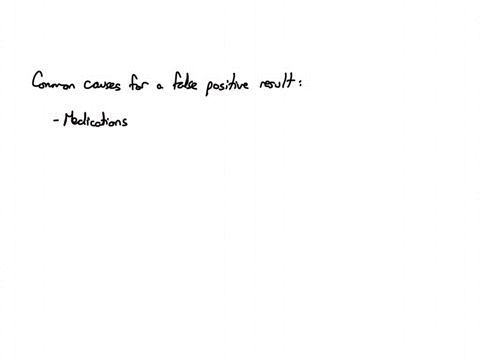 Common causes for a false positive result:
- Medications